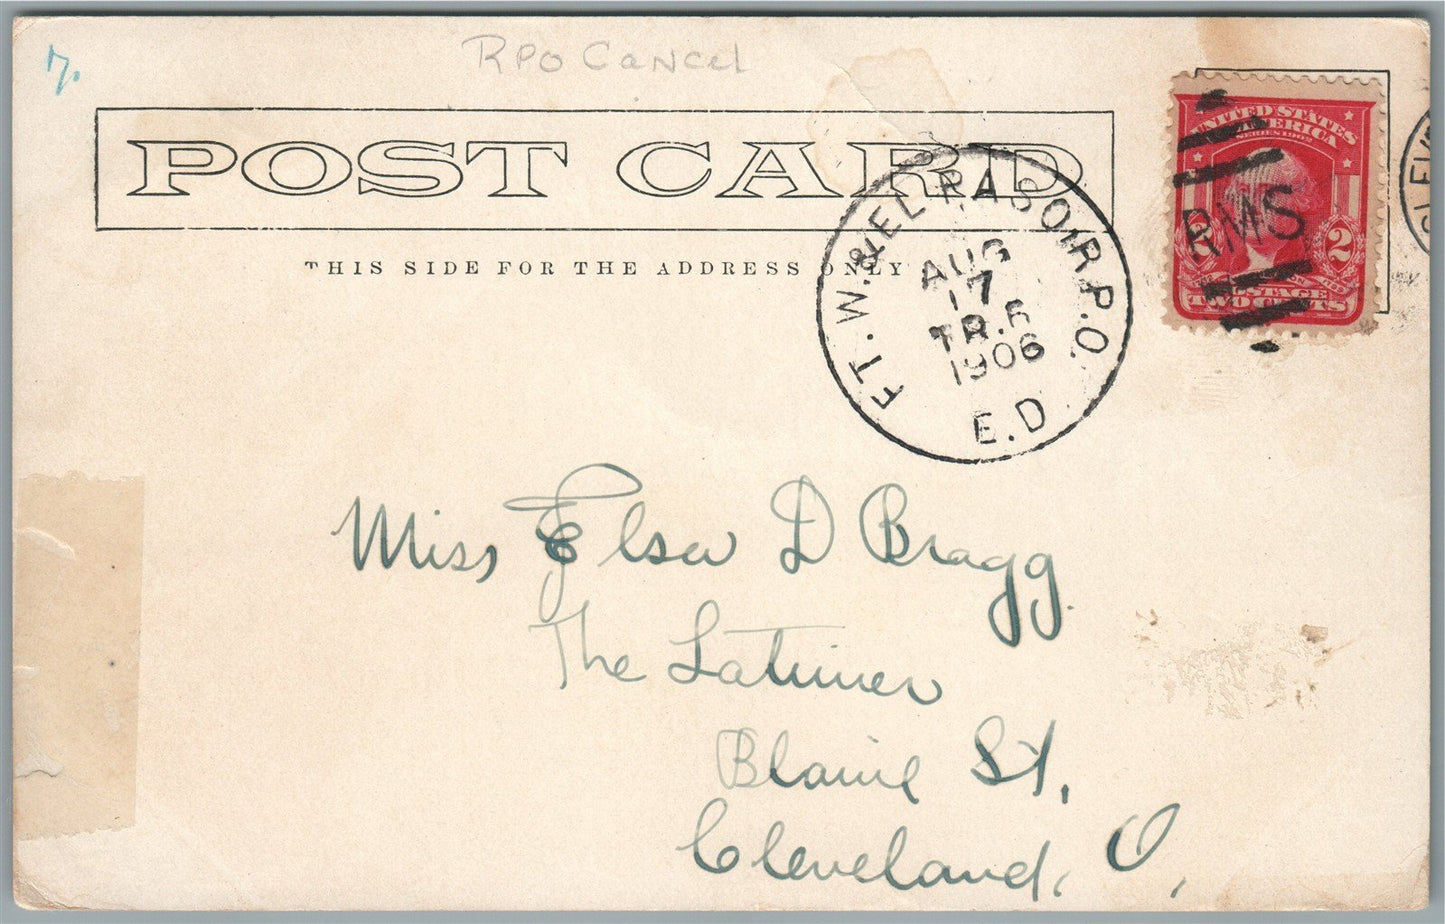 7.
RPO Cancel
POST CARD
THIS SIDE FOR THE ADDRESS ONLY
FT. W. & EL PASO, R.P.O.
AUG
17
TR. 6
1906
E.D
UNITED STATES
OF AMERICA
SERIES 1902
RMS
2 2
POSTAGE
TWO CENTS
CLEV
Miss Elsa D Bragg.
The Latimer
Blaine St,
Cleveland, O,